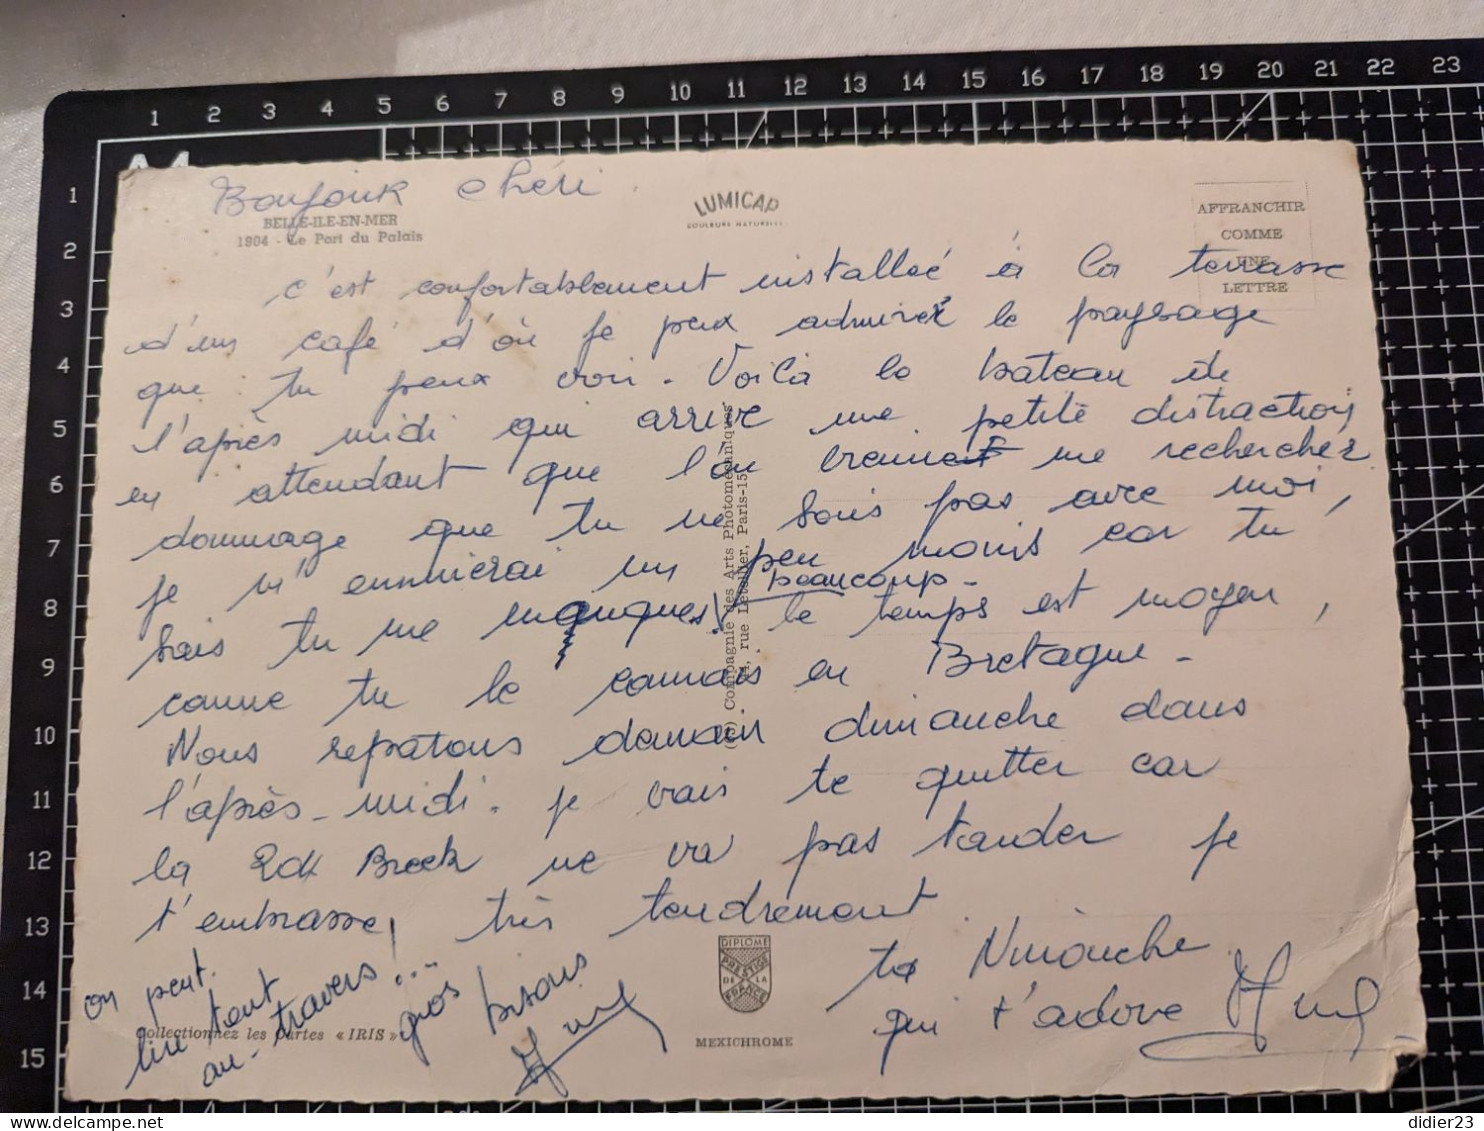 1 2 3 4 5 6 7 8 9 10 11 12 13 14 15 16 17 18 19 20 21 22 23
A4
1
2
3
4
5
6
7
8
9
10
11
12
13
14
15
Bonjour chéri.
BELLE-ILE-EN-MER
1804 - Le Port du Palais
LUMICAP
COULEURS NATURELLES
AFFRANCHIR
COMME
UNE
LETTRE
c'est confortablement installée à la terrasse
d'un café d'où je peux admirer le paysage
que tu peux voir. Voilà le bateau de
l'après midi qui arrive une petite distraction
en attendant que l'on vienne me rechercher
dommage que tu ne sois pas avec moi,
je m'ennuierai un peu moins car tu
sais tu me manques! beaucoup - le temps est moyen,
comme tu le connais en Bretagne -
Nous repatons demain dimanche dans
l'après-midi. je vais te quitter car
la 2cv Breek ne va pas tarder je
t'embrasse! très tendrement
ta Ninouche
qui t'adore
on peut
lire tout
au-travers!...
gros bisous
Compagnie des Arts Photomécaniques
rue Letellier, Paris-15
DIPLOME
PRESTIGE
DE LA
FRANCE
MEXICHROME
Collectionnez les Cartes «IRIS»
didier23